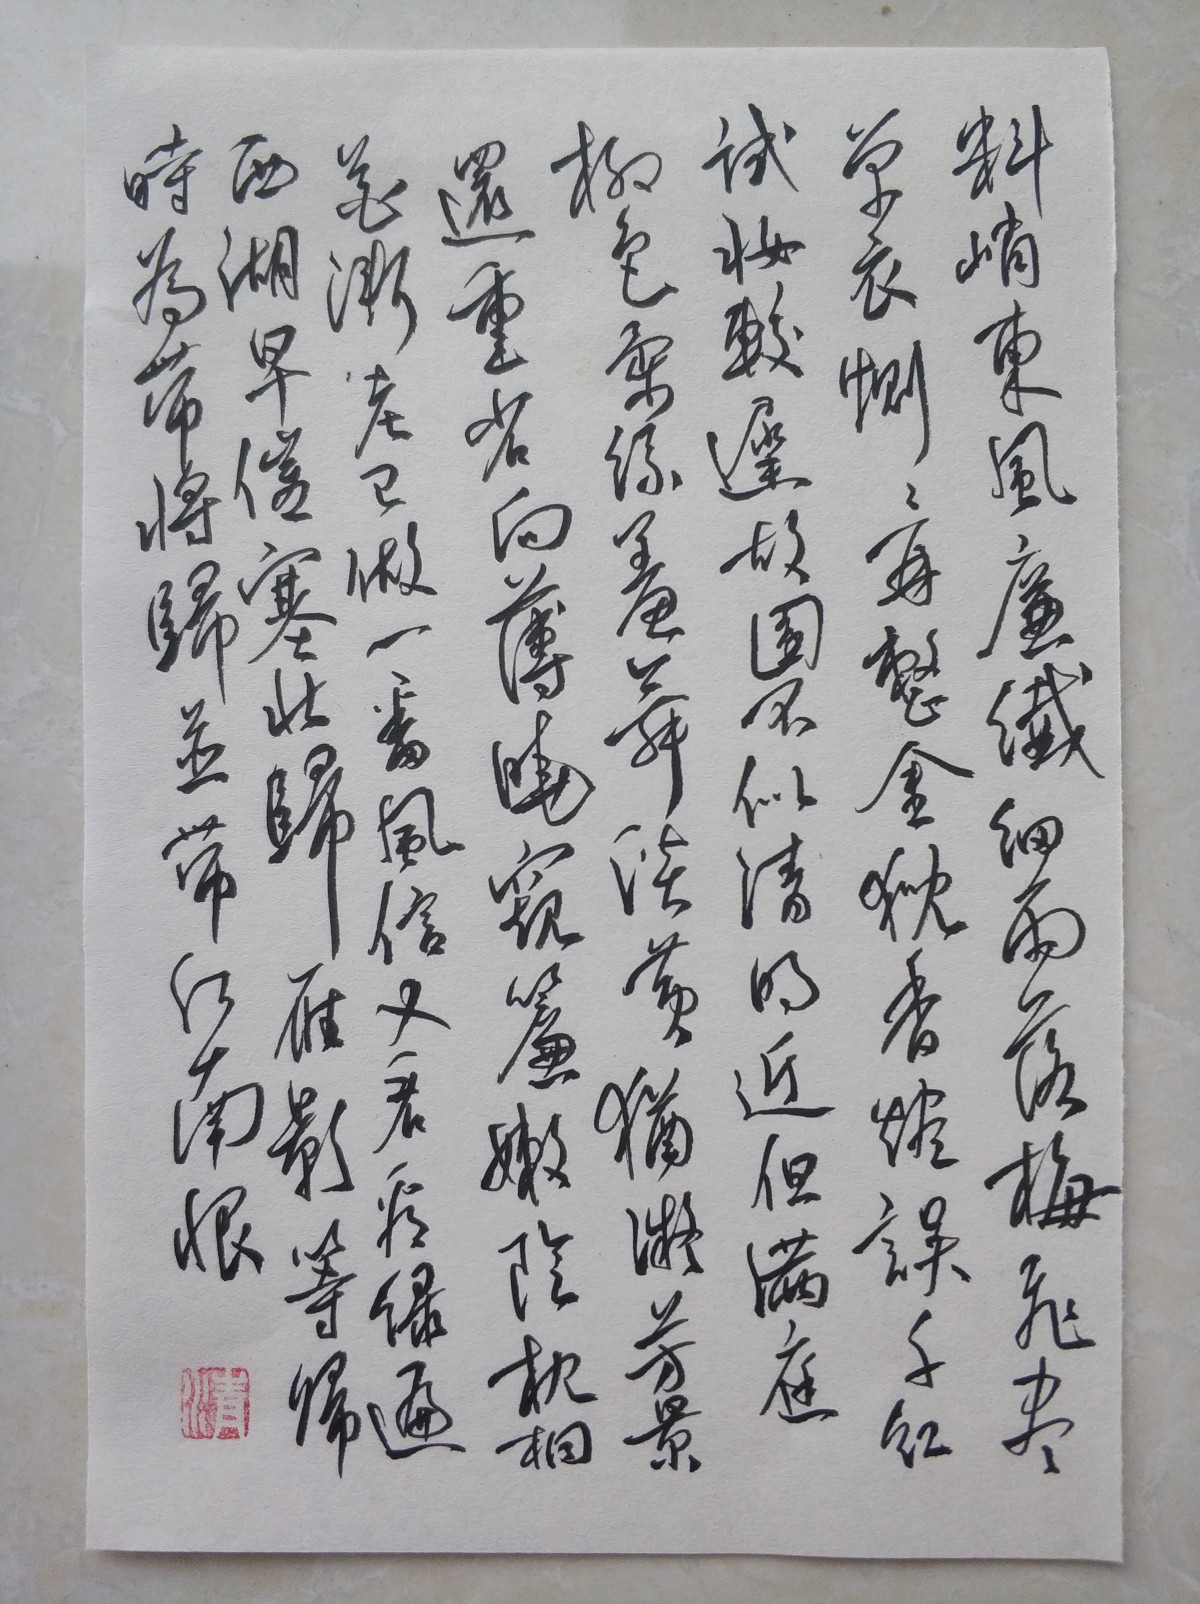 料峭東風廉纖細雨落梅飛盡
單衣惻々再整金猊香燼誤千紅
試妝較遲故園不似清明近但滿庭
柳色柔絲羞舞淡黃猶凝芳景
還重省向薄曉窺簾嫩陰枕桐
花漸老已做一番風信又看看綠遍
西湖早催塞北歸雁影等歸
時為帶將歸並帶江南恨